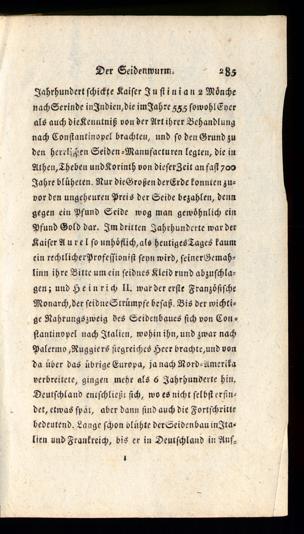 Der Seidenwurm. 285
Jahrhundert schickte Kaiser Justinian 2 Mönche
nach Serinde in Indien, die im Jahre 555 sowohl Eyer
als auch die Kenntniß von der Art ihrer Behandlung
nach Constantinopel brachten, und so den Grund zu
den herrlichen Seiden-Manufacturen legten, die in
Athen, Theben und Korinth von dieser Zeit an fast 700
Jahre blüheten. Nur die Großen der Erde konnten zu-
vor den ungeheuren Preis der Seide bezahlen, denn
gegen ein Pfund Seide wog man gewöhnlich ein
Pfund Gold dar. Im dritten Jahrhunderte war der
Kaiser Aurel so unhöflich, als heutiges Tages kaum
ein rechtlicher Professionist seyn wird, seiner Gemah-
linn ihre Bitte um ein seidnes Kleid rund abzuschla-
gen; und Heinrich II. war der erste Französische
Monarch, der seidne Strümpfe besaß. Bis der wichti-
ge Nahrungszweig des Seidenbaues sich von Con-
stantinopel nach Italien, wohin ihn, und zwar nach
Palermo, Ruggiers siegreiches Heer brachte, und von
da über das übrige Europa, ja nach Nord-Amerika
verbreitete, gingen mehr als 6 Jahrhunderte hin.
Deutschland entschließt sich, wo es nicht selbst erfin-
det, etwas spät, aber dann sind auch die Fortschritte
bedeutend. Lange schon blühte der Seidenbau in Ita-
lien und Frankreich, bis er in Deutschland in Auf-